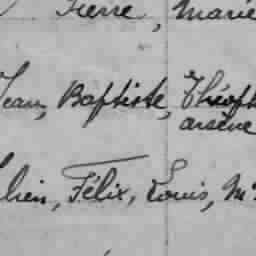 Pierre, Marie
Jean, Baptiste, Théoph
arsène
Félix, Louis, M